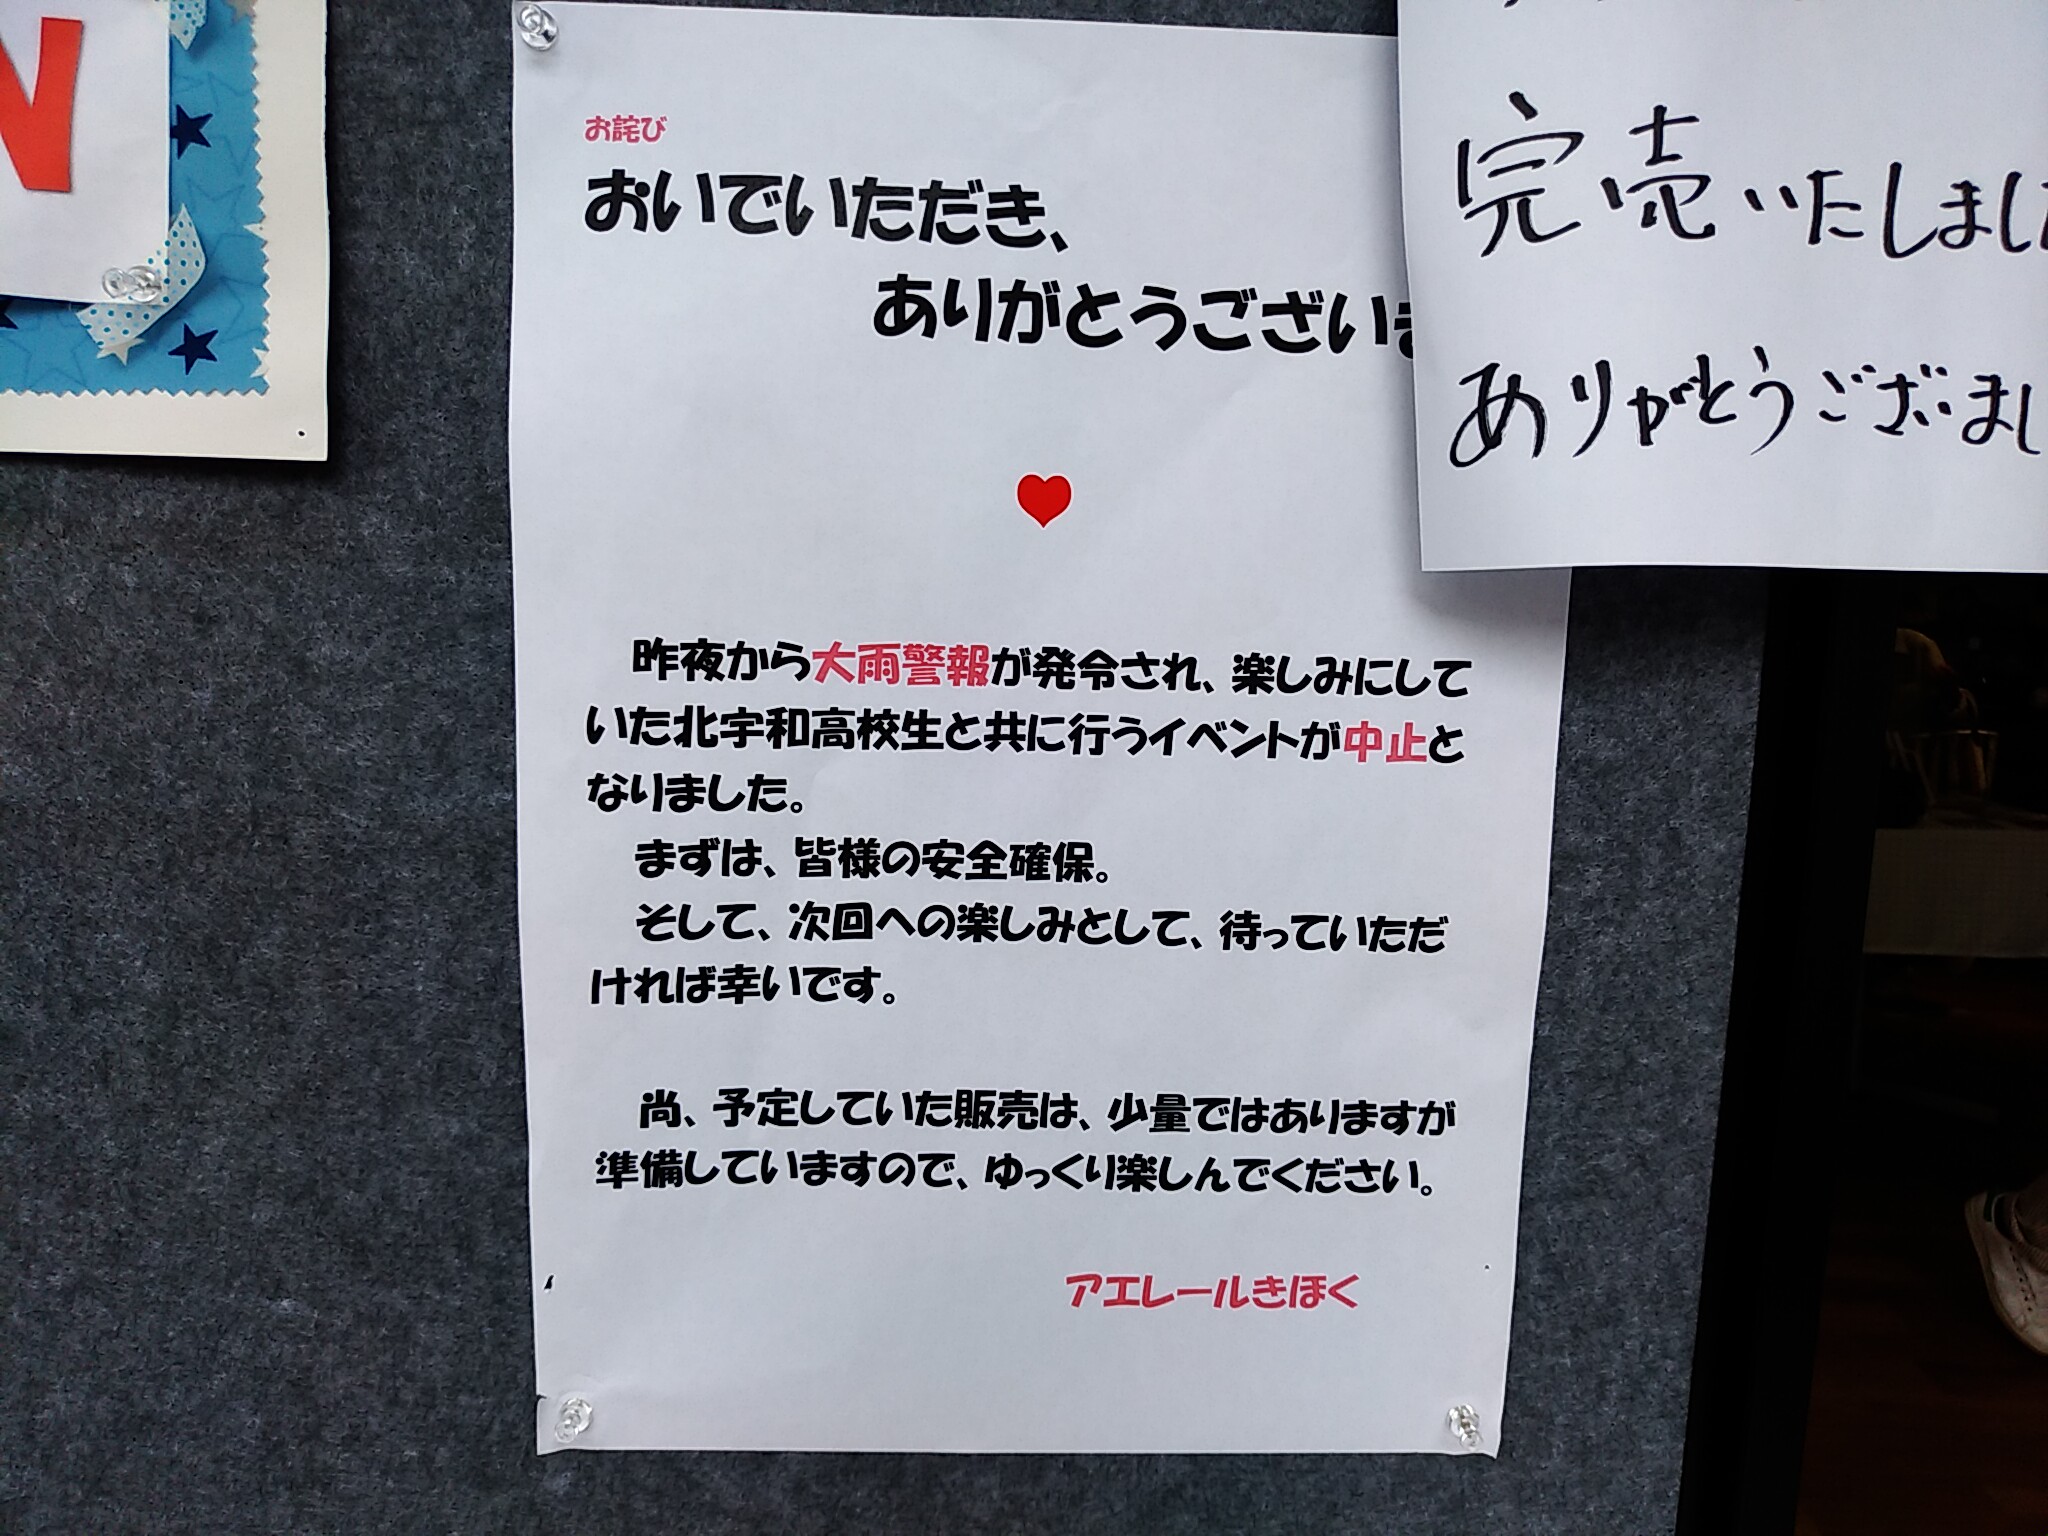 N
お詫び
おいでいただき、
ありがとうございま
昨夜から大雨警報が発令され、楽しみにして
いた北宇和高校生と共に行うイベントが中止と
なりました。
まずは、皆様の安全確保。
そして、次回への楽しみとして、待っていただ
ければ幸いです。
尚、予定していた販売は、少量ではありますが
準備していますので、ゆっくり楽しんでください。
アエレールきほく
完売いたしまし
ありがとうございまし